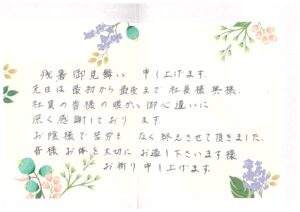 残暑御見舞い 申し上げます.
先日は最初から最後まで社長様奥様.
社員の皆様の暖かい御心遣いに
深く感謝しております.
お陰様で苦分も なく終えさせて頂きました.
皆様お体を大切に お過し下さいます様
お祈り申し上げます.